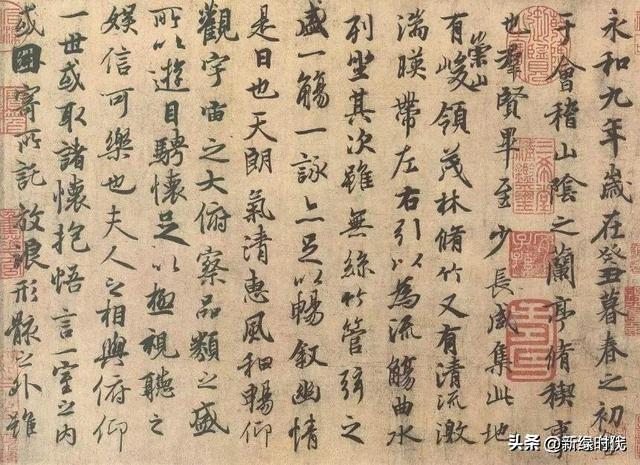 永和九年歲在癸丑暮春之初會
于會稽山陰之蘭亭脩稧事
也羣賢畢至少長咸集此地
有崇山峻領茂林脩竹又有清流激
湍暎帶左右引以為流觴曲水
列坐其次雖無絲竹管弦之
盛一觴一詠亦足以暢敘幽情
是日也天朗氣清惠風和暢仰
觀宇宙之大俯察品類之盛
所以遊目騁懷足以極視聽之
娛信可樂也夫人之相與俯仰
一世或取諸懷抱悟言一室之內
或因寄所託放浪形骸之外雖
头条 @新绿时代